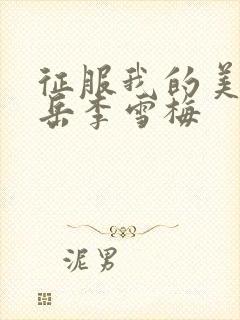 征服我的美
岳李雪梅
泥男